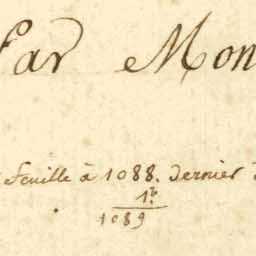 Par Mon
feuille à 1088. dernier
1.
1089